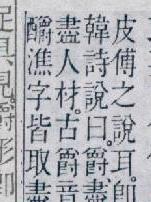 皮傅之說耳卽
韓詩說曰爵盡
盡人材古爵音
釂潐字皆取盡